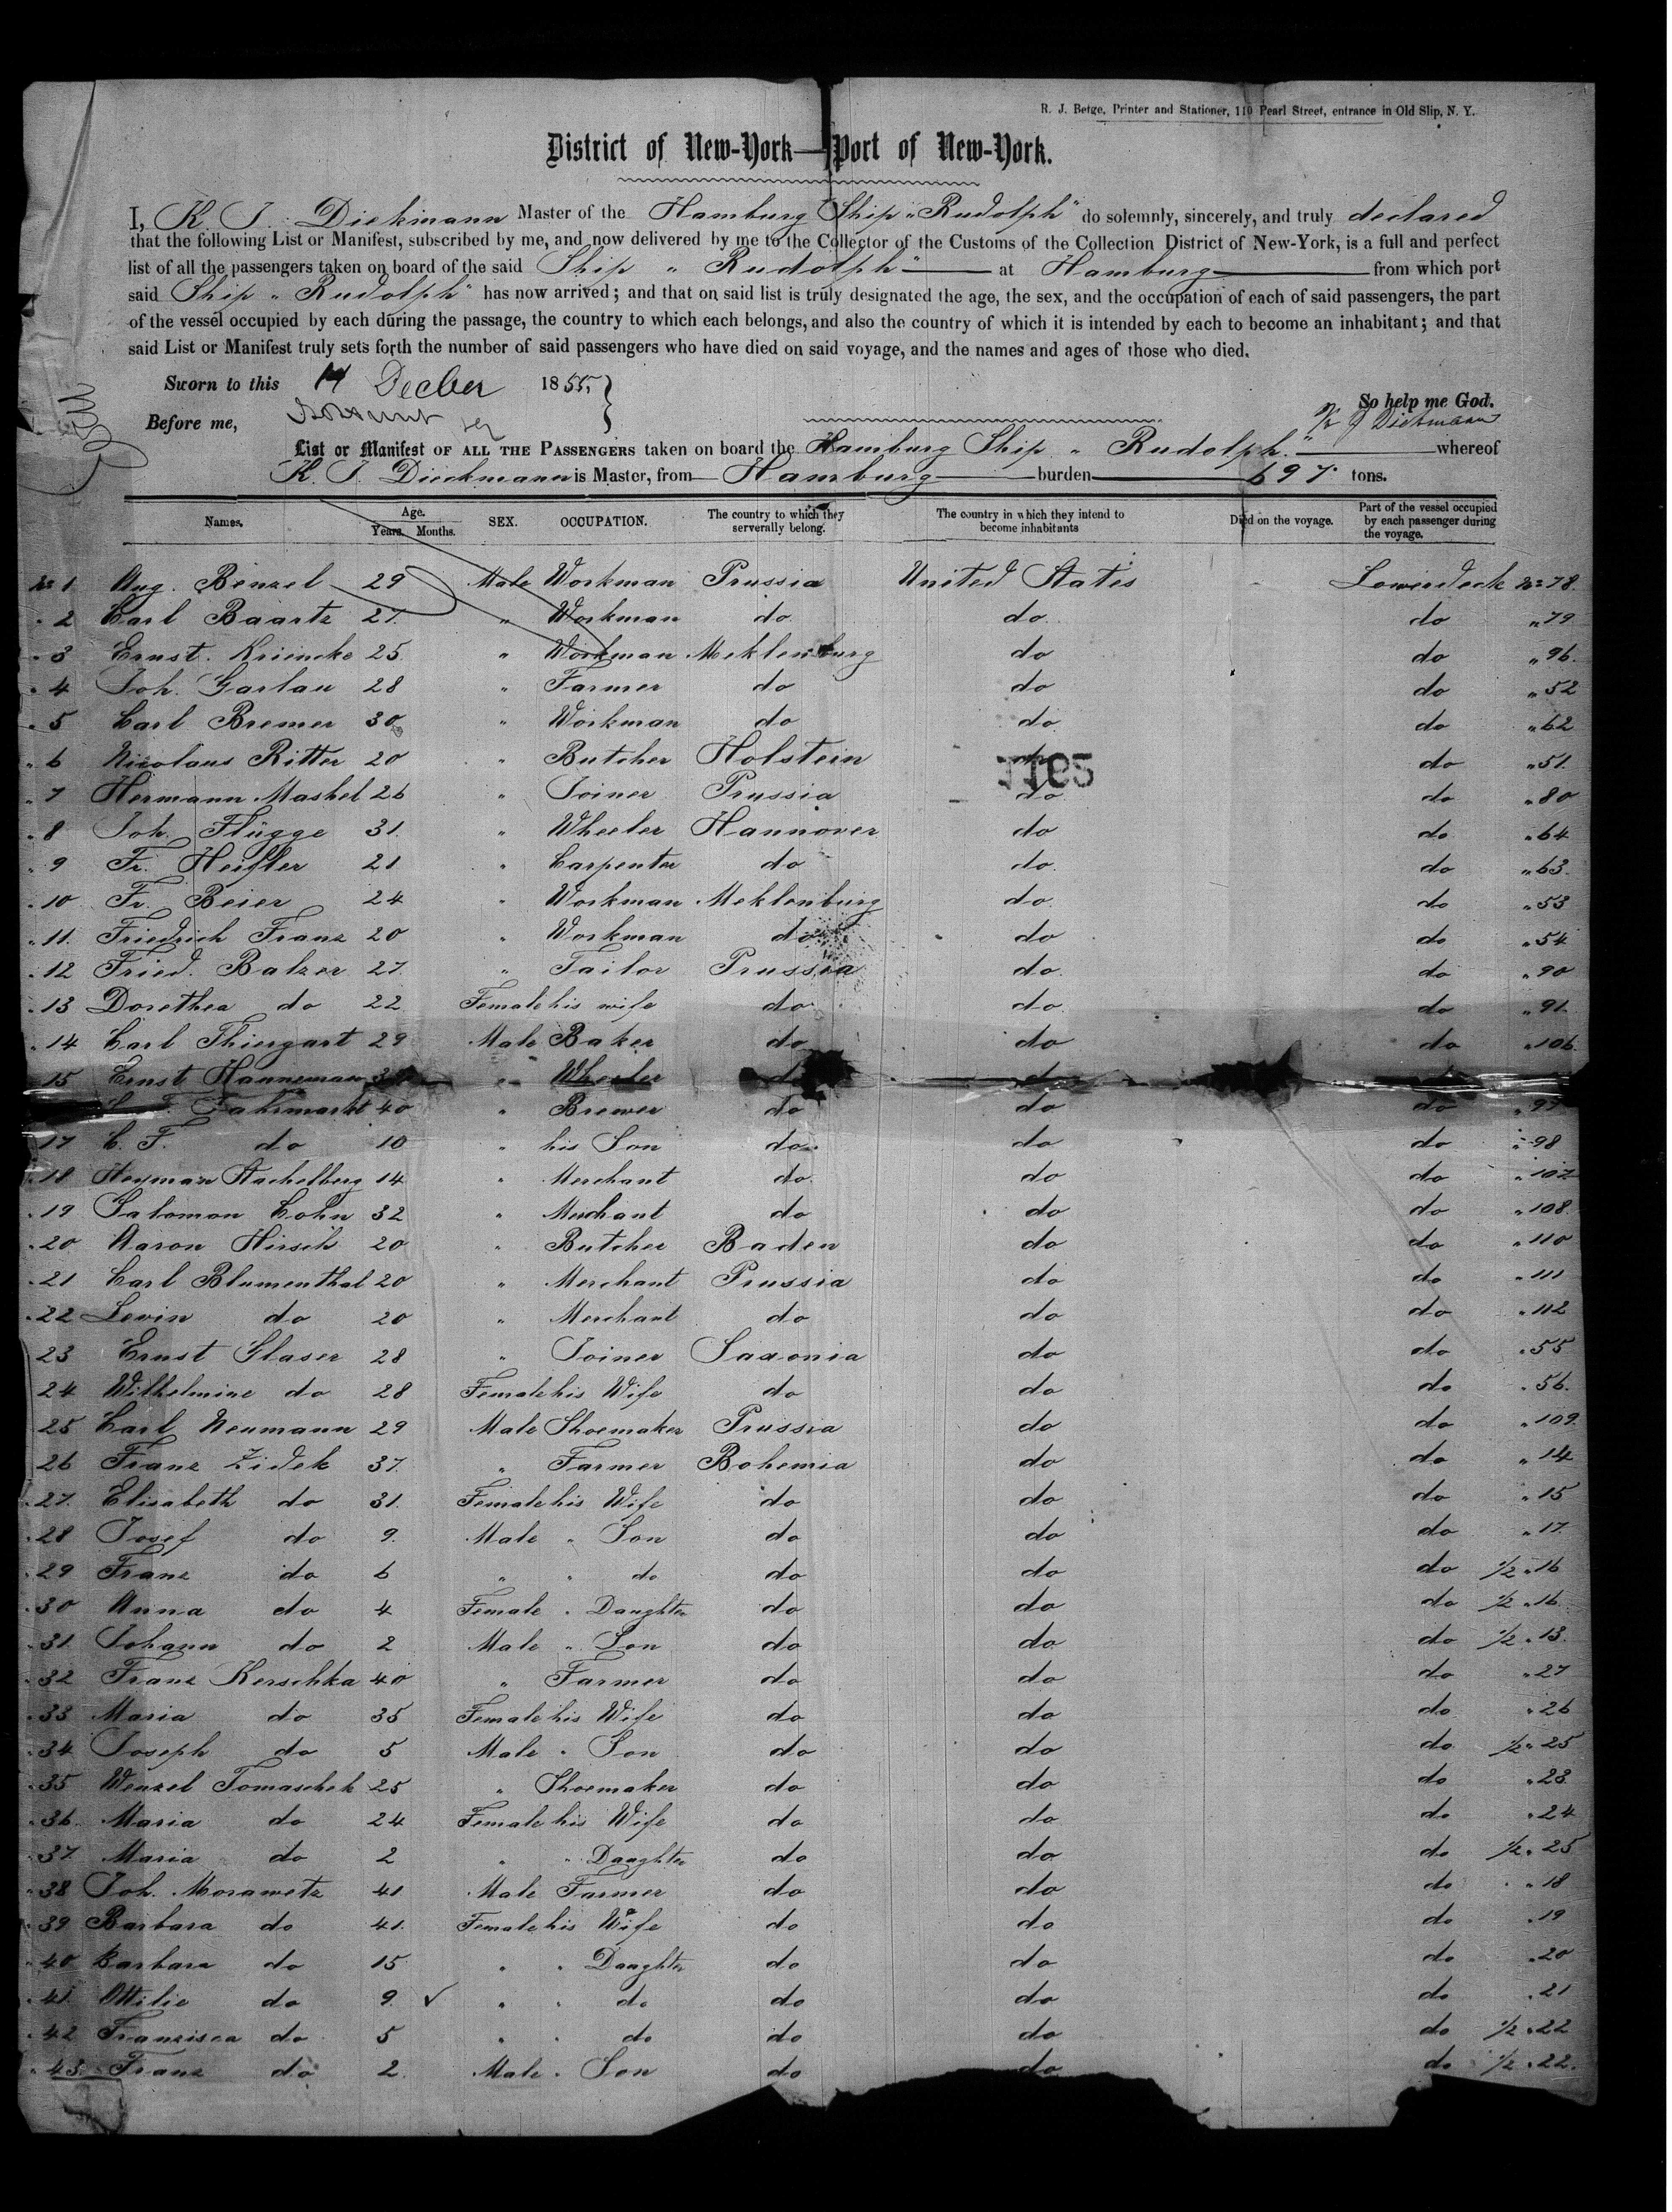 R. J. Betge, Printer and Stationer, 110 Pearl Street, entrance in Old Slip, N. Y.
District of New-York—Port of New-York.
I, K. J. Diekmann Master of the Hamburg Ship „Rudolph" do solemnly, sincerely, and truly declared
that the following List or Manifest, subscribed by me, and now delivered by me to the Collector of the Customs of the Collection District of New-York, is a full and perfect
list of all the passengers taken on board of the said Ship „ Rudolph" at Hamburg from which port
said Ship „ Rudolph" has now arrived; and that on said list is truly designated the age, the sex, and the occupation of each of said passengers, the part
of the vessel occupied by each during the passage, the country to which each belongs, and also the country of which it is intended by each to become an inhabitant; and that
said List or Manifest truly sets forth the number of said passengers who have died on said voyage, and the names and ages of those who died.
Sworn to this 14 Decber 1855,
So help me God.
Before me, K J Diekmann
List or Manifest OF ALL THE PASSENGERS taken on board the Hamburg Ship „ Rudolph." whereof
K. J. Dieckmann is Master, from Hamburg burden 697 tons.
Names. Age. Years. Months. SEX. OCCUPATION. The country to which they serverally belong. The country in which they intend to become inhabitants Died on the voyage. Part of the vessel occupied by each passenger during the voyage.
No 1 Aug. Benzel 29 Male Workman Prussia United States Lowerdeck No 78.
" 2 Carl Baartz 27. " Workman do do. do " 79
" 3 Ernst. Kriencke 25 " Workman Meklenburg do do " 96.
" 4 Joh. Garlau 28 " Farmer do do do " 52
" 5 Carl Bremer 30 " Workman do do do " 62
" 6 Nicolaus Ritter 20 " Butcher Holstein do do " 51.
1165
" 7 Hermann Maskel 26 " Joiner Prussia do do " 80
" 8 Joh. Flügge 31. " Wheeler Hannover do do " 64
" 9 Fr. Heißler 21 " Carpenter do do. do " 63.
" 10 Fr. Beier 24 " Workman Meklenburg do. do " 53
" 11. Friedrich Franz 20 " Workman do do do " 54
" 12 Fried. Balzer 27. " Tailor Prussia do. do " 90
" 13 Dorethea do 22 Female his wife do do. do " 91.
" 14 Carl Thiergart 29 Male Baker do do do " 106.
15 Ernst Hanneman " Wheeler do do
Fahrmarkt 40 " Brewer do do do " 97
17 C. F. do 10 " his Son do do do " 98
" 18 Heyman Stachelberg 14 " Merchant do do do " 107
" 19 Salomon Cohn 32 " Merchant do do do " 108.
" 20 Aaron Hirsch 20 " Butcher Baden do do " 110
" 21 Carl Blumenthal 20 " Merchant Prussia do do " 111
" 22 Levin do 20 " Merchant do do do " 112
23 Ernst Glaser 28 " Joiner Saxonia do do " 55
24 Wilhelmine do 28 Female his Wife do do do " 56.
25 Carl Neumann 29 Male Shoemaker Prussia do do " 109.
26 Franz Zidek 37. " Farmer Bohemia do do " 14
" 27. Elisabeth do 31. Female his Wife do do do " 15
" 28 Josef do 9. Male " Son do do do " 17.
" 29 Franz do 6 " " do do do do 1/2 " 16
" 30 Anna do 4 Female " Daughter do do do 1/2 " 16.
" 31. Johann do 2 Male " Son do do do 1/2 " 13.
" 32 Franz Kerschka 40 " Farmer do do do " 27
" 33 Maria do 35 Female his Wife do do do " 26
" 34 Joseph do 5 Male " Son do do do 1/2 " 25
" 35 Wenzel Tomaschek 25 " Shoemaker do do do " 23.
" 36. Maria do 24 Female his Wife do do do " 24
" 37. Maria do 2 " " Daughter do do do 1/2 " 25
" 38 Joh. Morawetz 41 Male Farmer do do do " 18
" 39 Barbara do 41. Female his Wife do do do " 19
" 40 Barbara do 15 " " Daughter do do do " 20
" 41. Ottilie do 9. ✓ " " do do do do " 21
" 42 Franzisca do 5 " " do do do do 1/2 " 22
" 43. Franz do 2 Male " Son do do do 1/2 " 22.